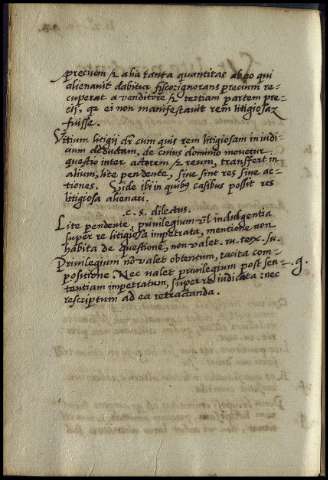 precium & alia tanta quantitas ab eo qui
alienauit dabitur fisco: ignorans precium re-
cuperat a venditore & tertiam partem pre-
cij, q̃ ei non manifestauit rem litigiosaz
fuisse.
Vitium litigij est cum quis rem litigiosam in iudi-
cium deductam, de cuius dominio mouetur
questio inter actorem & reum, transfert in
alium, lite pendente, siue sint res siue ac-
tiones. Vide ibi in quib9 casibus possit res
litigiosa alienari.
.c. s. dilectus.
Lite pendente, priuilegium ṽl indulgentia
super re litigiosa impetrata, mentione non
habita de questione, non valet. ru. tex. su.
Priuilegium nõ valet obtentum, tacita com-
positione. Nec ualet priuilegium post sen- . 9.
tentiam impetratum, super re iudicata: nec
rescriptum ad ea retractanda.